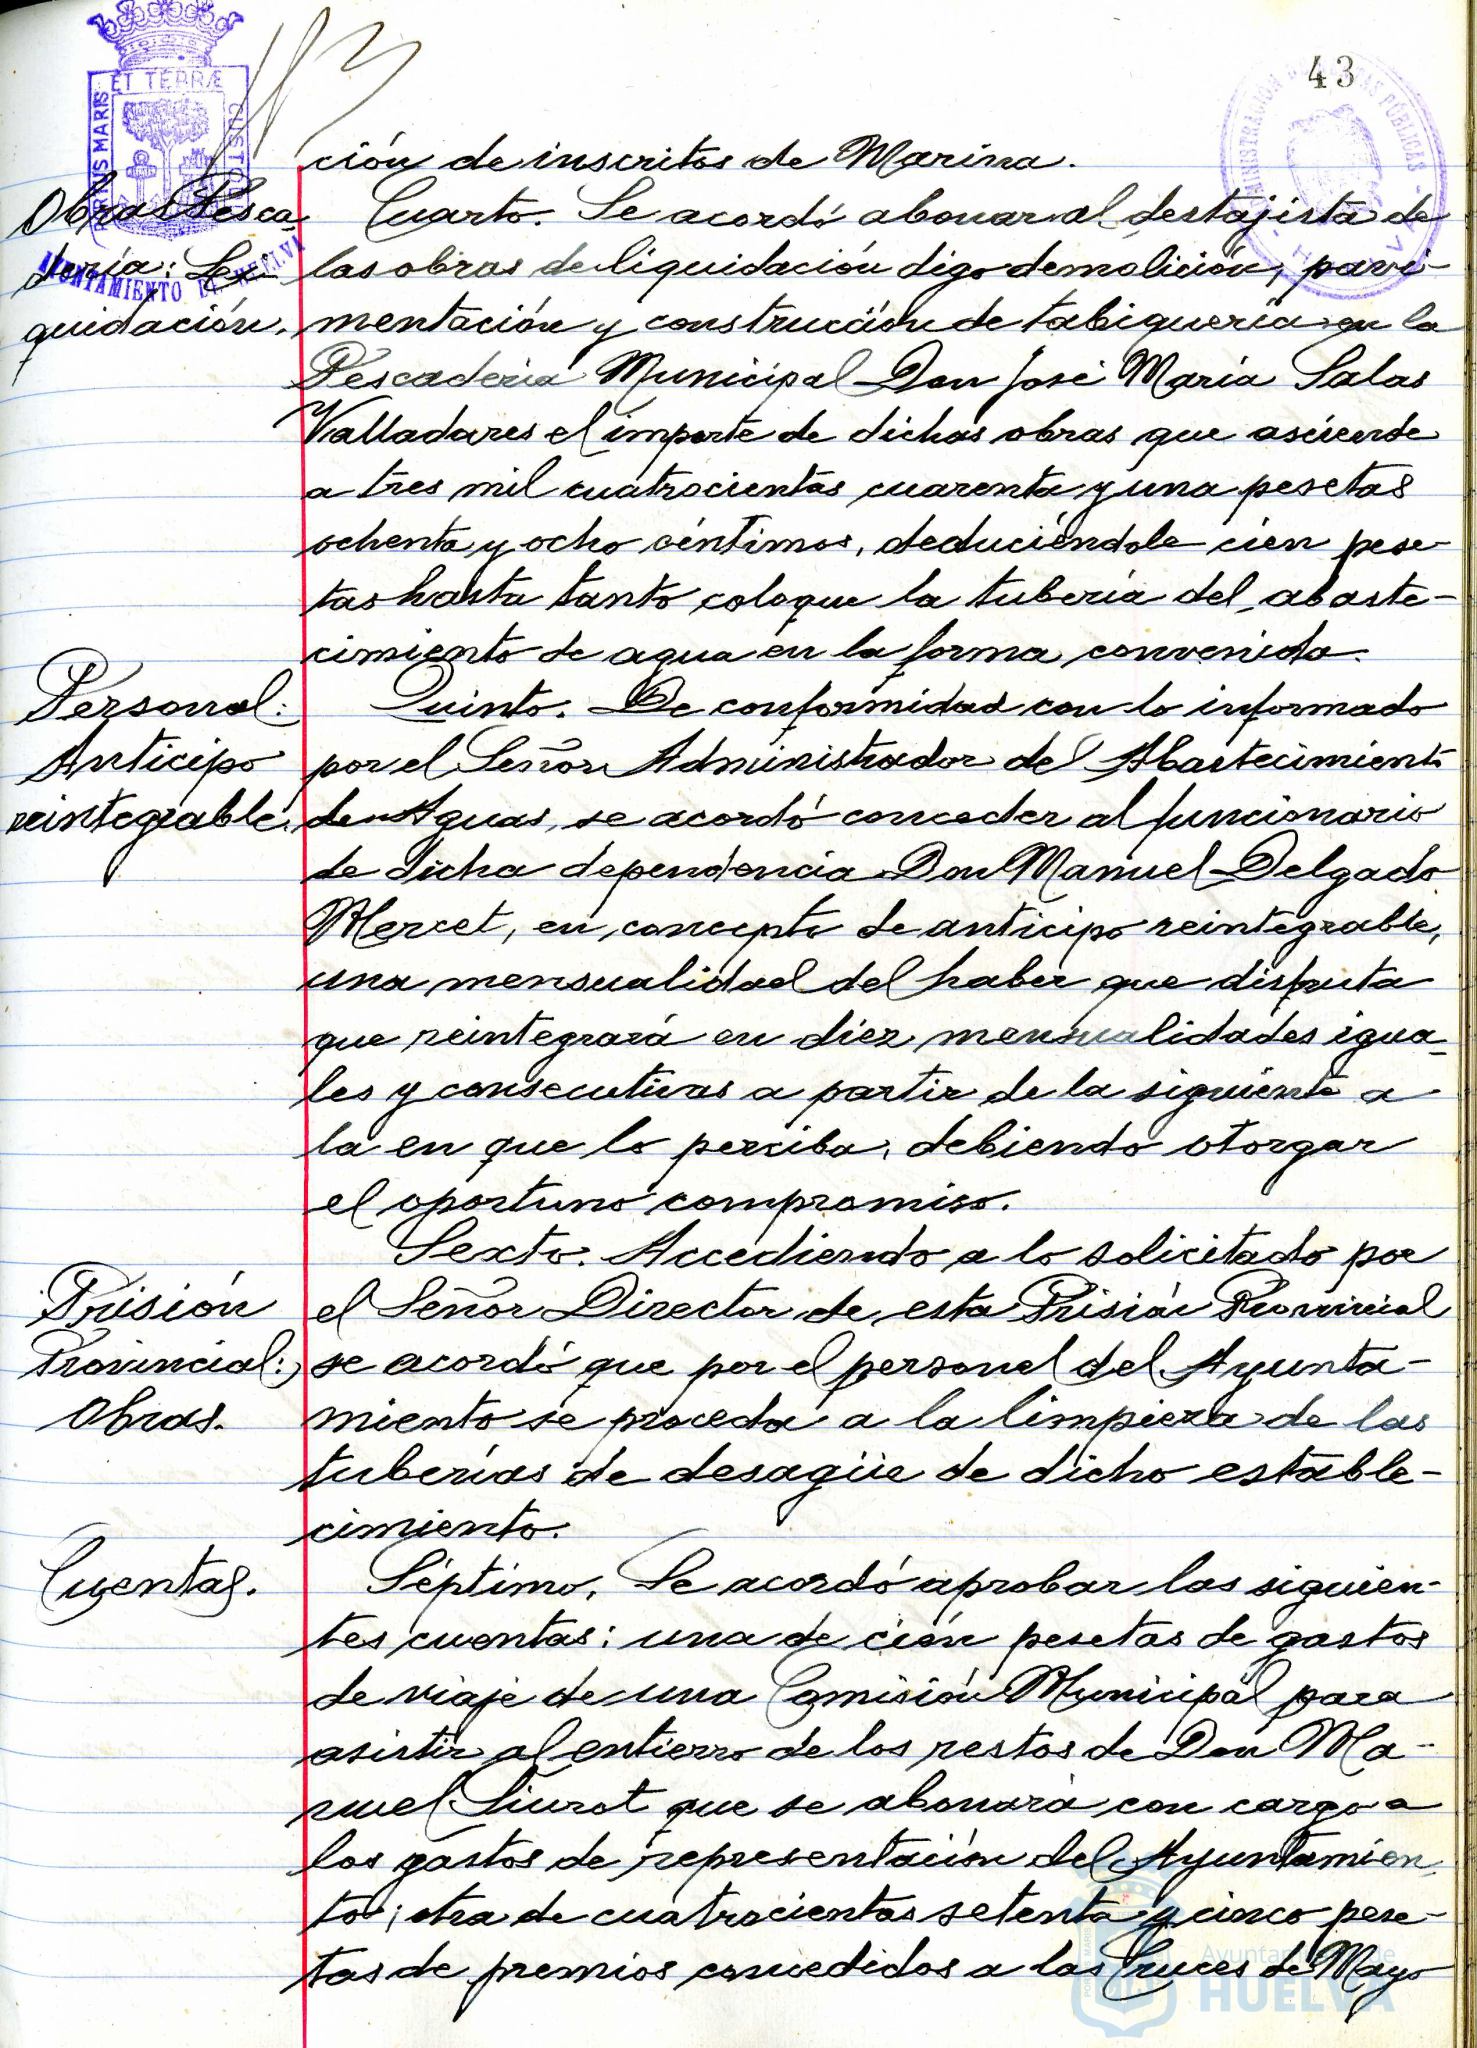 43
PORTUS MARIS ET TERRÆ CUSTODIA
AYUNTAMIENTO DE HUELVA
ADMINISTRACIÓN DE RENTAS PÚBLICAS
HUELVA
ción de inscritos de Marina.
Obras Pesca-
dería: Li-
quidación.
Cuarto. Se acordó abonar al destajista de
las obras de liquidación digo demolición, pavi-
mentación y construcción de tabiquería en la
Pescadería Municipal Don José María Salas
Valladares el importe de dichas obras que asciende
a tres mil cuatrocientas cuarenta y una pesetas
ochenta y ocho céntimos, deduciéndole cien pese-
tas hasta tanto coloque la tubería del abaste-
cimiento de agua en la forma convenida.
Personal:
Anticipo
reintegrable.
Quinto. De conformidad con lo informado
por el Señor Administrador del Abastecimiento
de Aguas, se acordó conceder al funcionario
de dicha dependencia Don Manuel Delgado
Mercet, en concepto de anticipo reintegrable,
una mensualidad del haber que disfruta
que reintegrará en diez mensualidades igua-
les y consecutivas a partir de la siguiente a
la en que lo perciba, debiendo otorgar
el oportuno compromiso.
Prisión
Provincial:
Obras.
Sexto. Accediendo a lo solicitado por
el Señor Director de esta Prisión Provincial
se acordó que por el personal del Ayunta-
miento se proceda a la limpieza de las
tuberías de desagüe de dicho estable-
cimiento.
Cuentas.
Séptimo. Se acordó aprobar las siguien-
tes cuentas: una de cien pesetas de gastos
de viaje de una Comisión Municipal para
asistir al entierro de los restos de Don Ma-
nuel Siurot que se abonará con cargo a
los gastos de representación del Ayuntamien
to; otra de cuatrocientas setenta y cinco pese-
tas de premios concedidos a las Cruces de Mayo
Ayuntamiento de
HUELVA